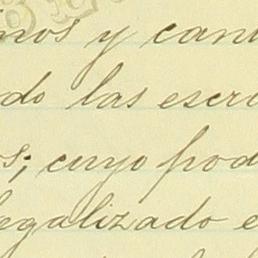 inos y cam
do las escri
os; cuyo pod
legalizado e